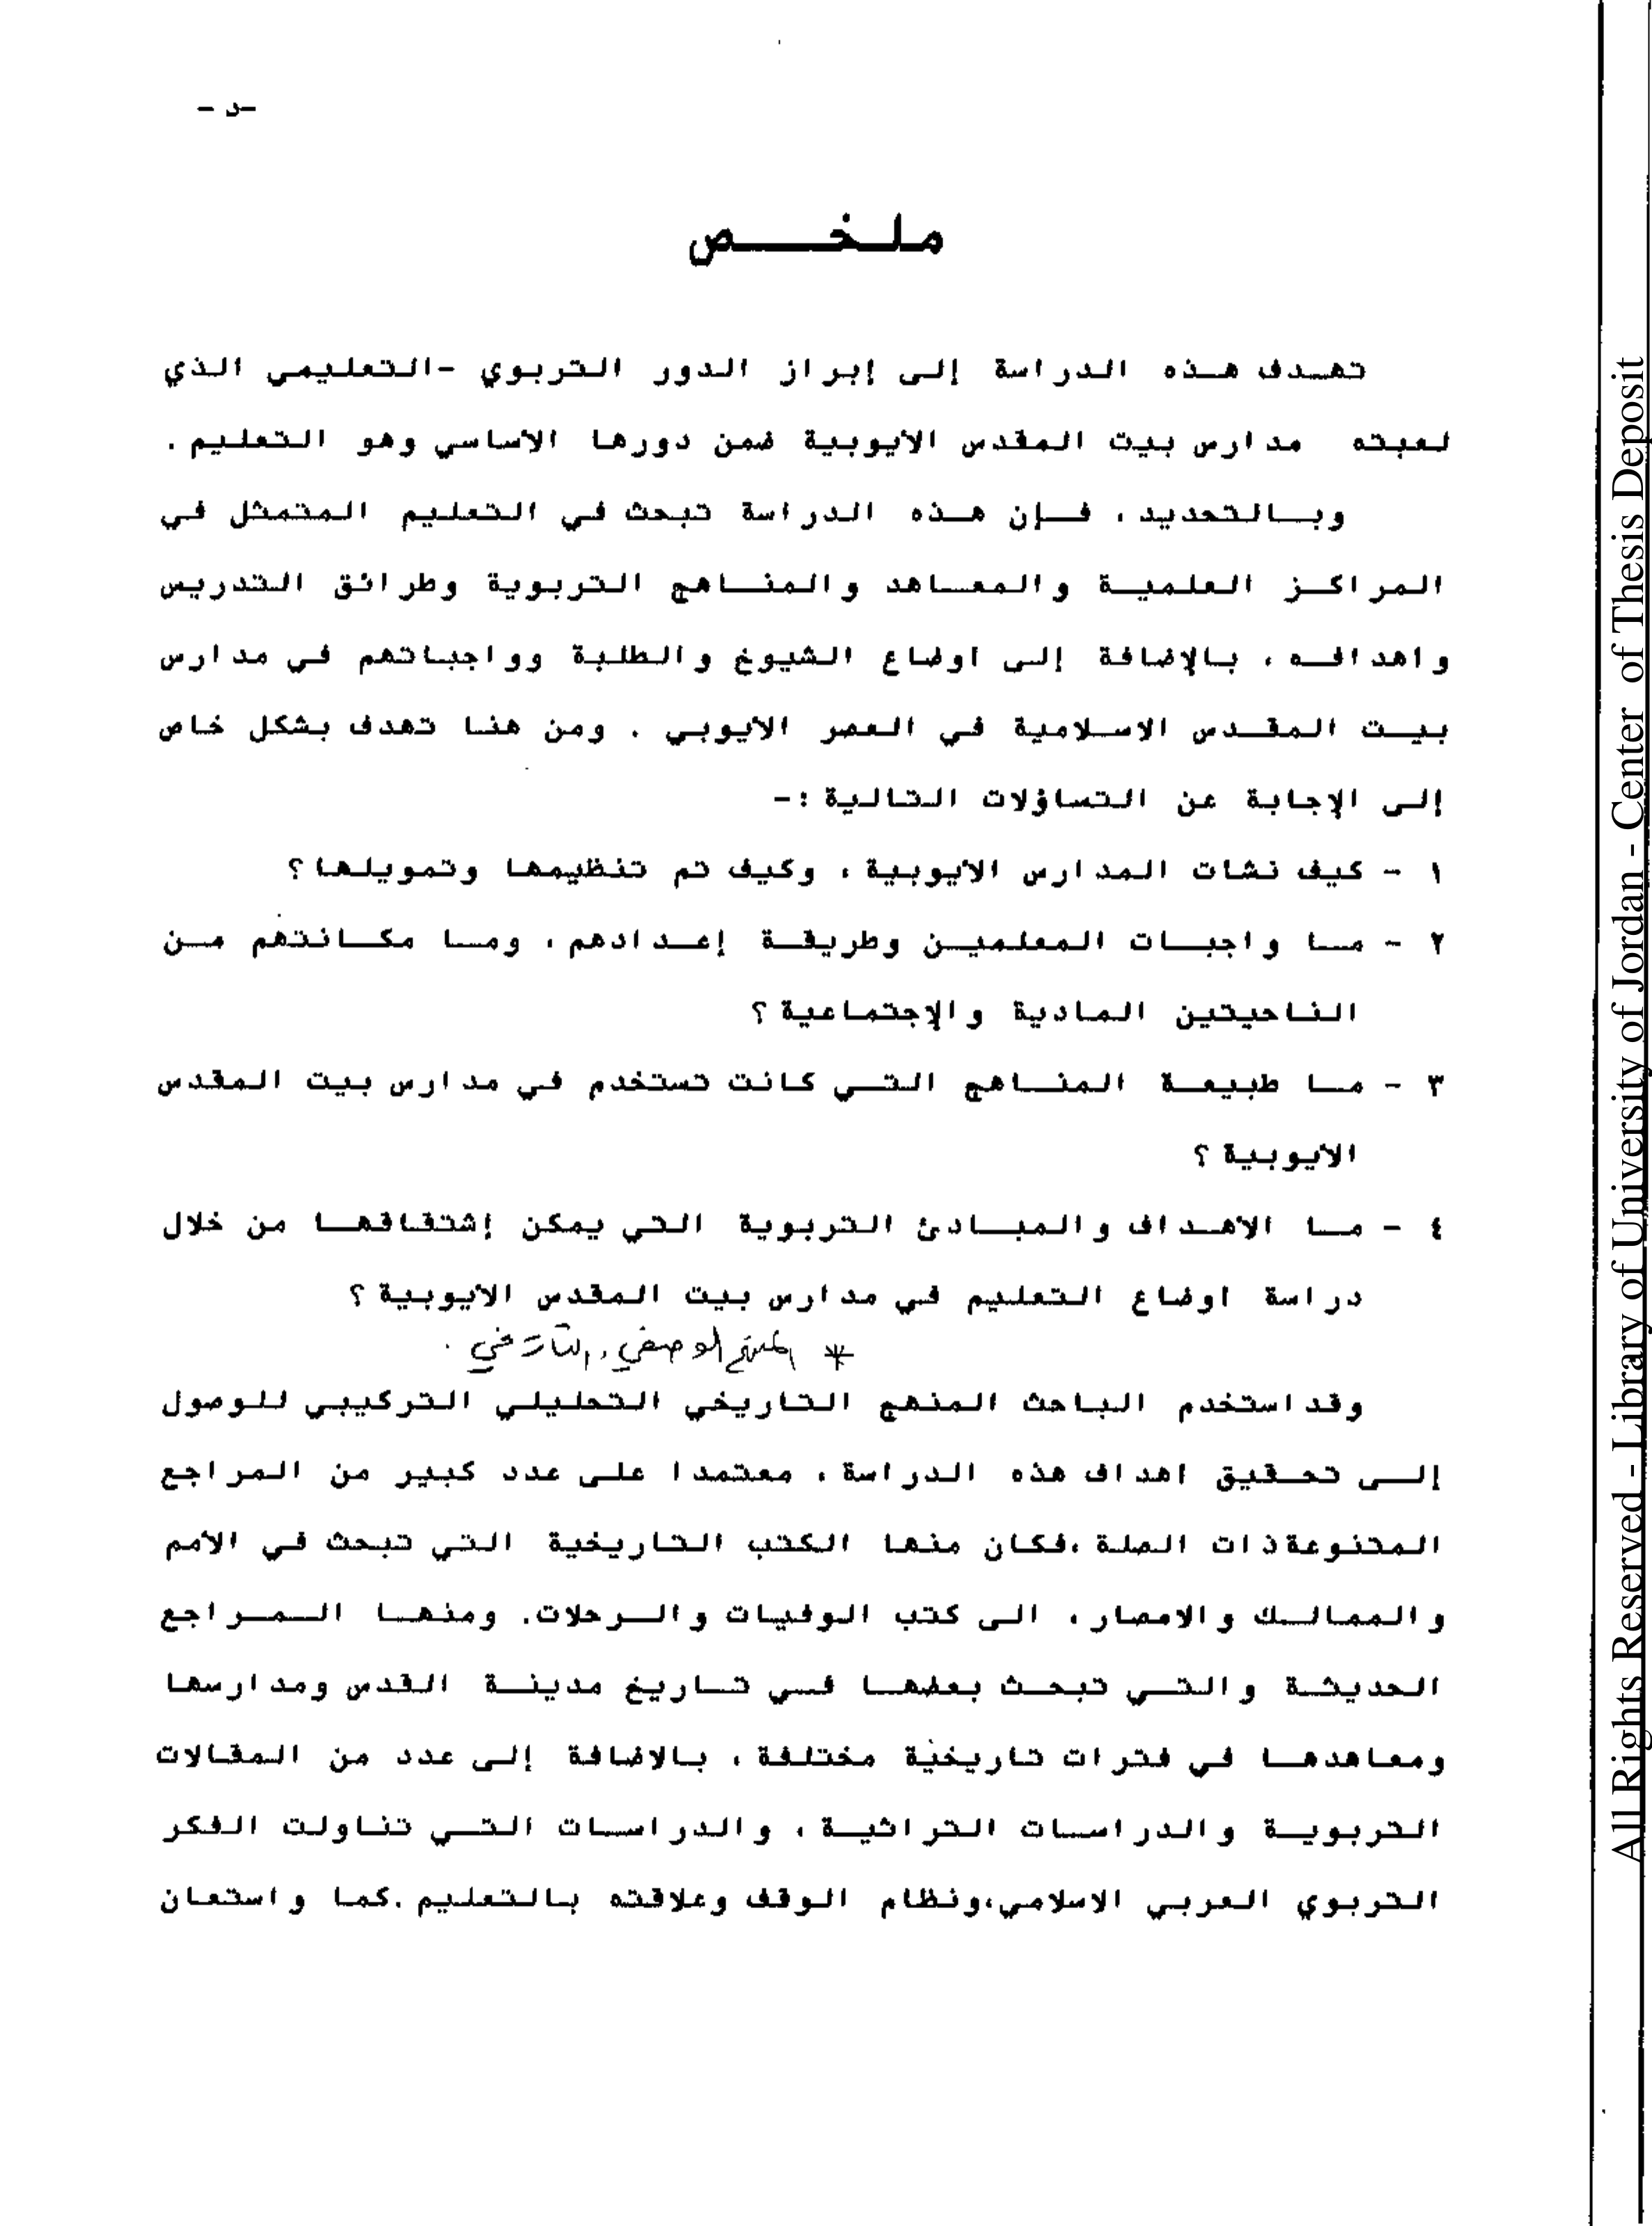 -د -
ملخص
تهدف هذه الدراسة إلى إبراز الدور التربوي -التعليمي الذي
لعبته مدارس بيت المقدس الأيوبية ضمن دورها الأساسي وهو التعليم .
وبالتحديد ، فإن هذه الدراسة تبحث في التعليم المتمثل في
المراكز العلمية والمعاهد والمناهج التربوية وطرائق التدريس
واهدافه ، بالإضافة إلى اوضاع الشيوخ والطلبة وواجباتهم في مدارس
بيت المقدس الاسلامية في العصر الأيوبي . ومن هنا تهدف بشكل خاص
إلى الإجابة عن التساؤلات التالية :-
١ - كيف نشات المدارس الأيوبية ، وكيف تم تنظيمها وتمويلها ؟
٢ - ما واجبات المعلمين وطريقة إعدادهم ، وما مكانتهم من
الناحيتين المادية والإجتماعية ؟
٣ - ما طبيعة المناهج التي كانت تستخدم في مدارس بيت المقدس
الأيوبية ؟
٤ - ما الأهداف والمبادئ التربوية التي يمكن إشتقاقها من خلال
دراسة اوضاع التعليم في مدارس بيت المقدس الأيوبية ؟
* المنهج الوصفي , التاريخي .
وقد استخدم الباحث المنهج التاريخي التحليلي التركيبي للوصول
إلى تحقيق اهداف هذه الدراسة ، معتمدا على عدد كبير من المراجع
المتنوعةذات الصلة ،فكان منها الكتب التاريخية التي تبحث في الأمم
والممالك والامصار ، الى كتب الوفيات والرحلات. ومنها المراجع
الحديثة والتي تبحث بعضها في تاريخ مدينة القدس ومدارسها
ومعاهدها في فترات تاريخية مختلفة ، بالاضافة إلى عدد من المقالات
التربوية والدراسات التراثية ، والدراسات التي تناولت الفكر
التربوي العربي الاسلامي،ونظام الوقف وعلاقته بالتعليم .كما واستعان
All Rights Reserved - Library of University of Jordan - Center of Thesis Deposit